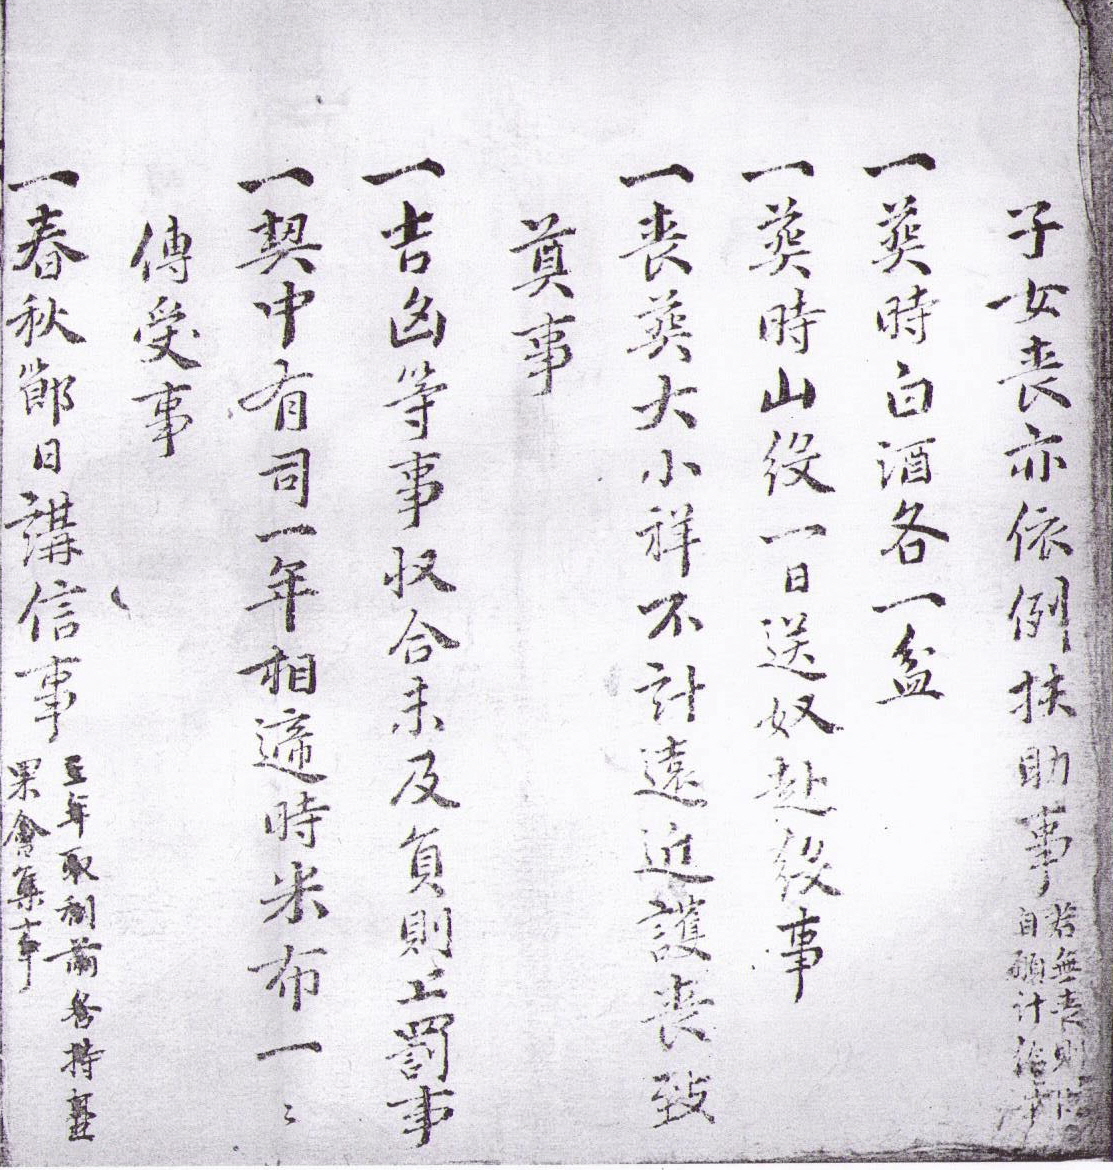 子女喪亦依例扶助事
若無喪則
自願計給事
一葬時白酒各一盆
一葬時山役一日送奴赴役事
一喪葬大小祥不計遠近護喪致
奠事
一吉凶等事収合未及負則上罰事
一契中有司一年相遞時米布一〻
傳受事
一春秋節日講信事
五年取利前各持壺
果會集事